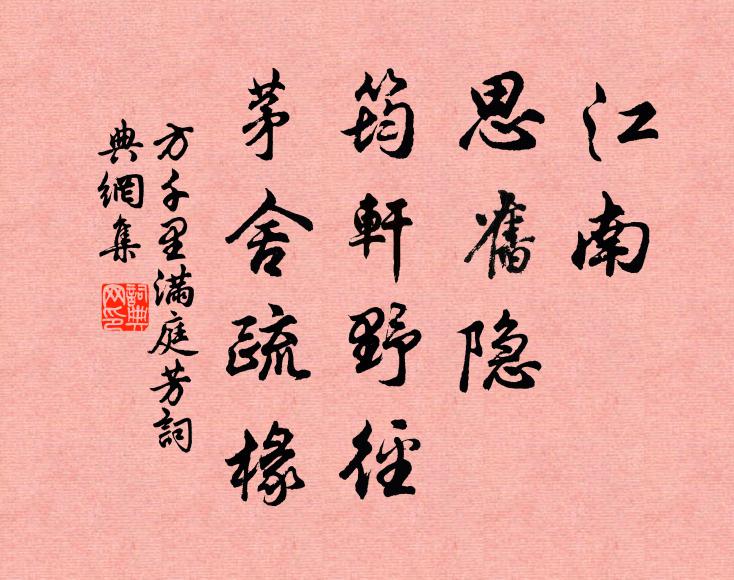 江南
思舊隐
筠軒野徑
茅舍疏椽
方千里滿庭芳詞
典網集
詞典網印